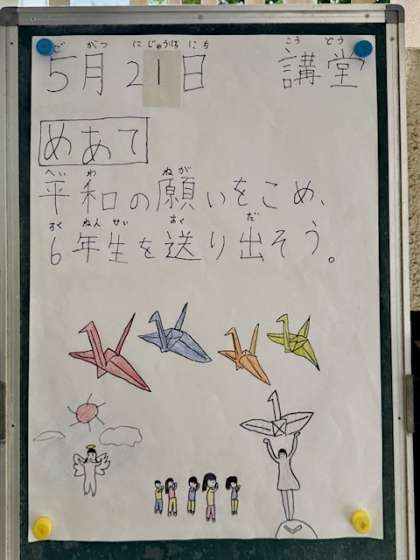 5月21日 講堂
めあて
平和の願いをこめ、
6年生を送り出そう。